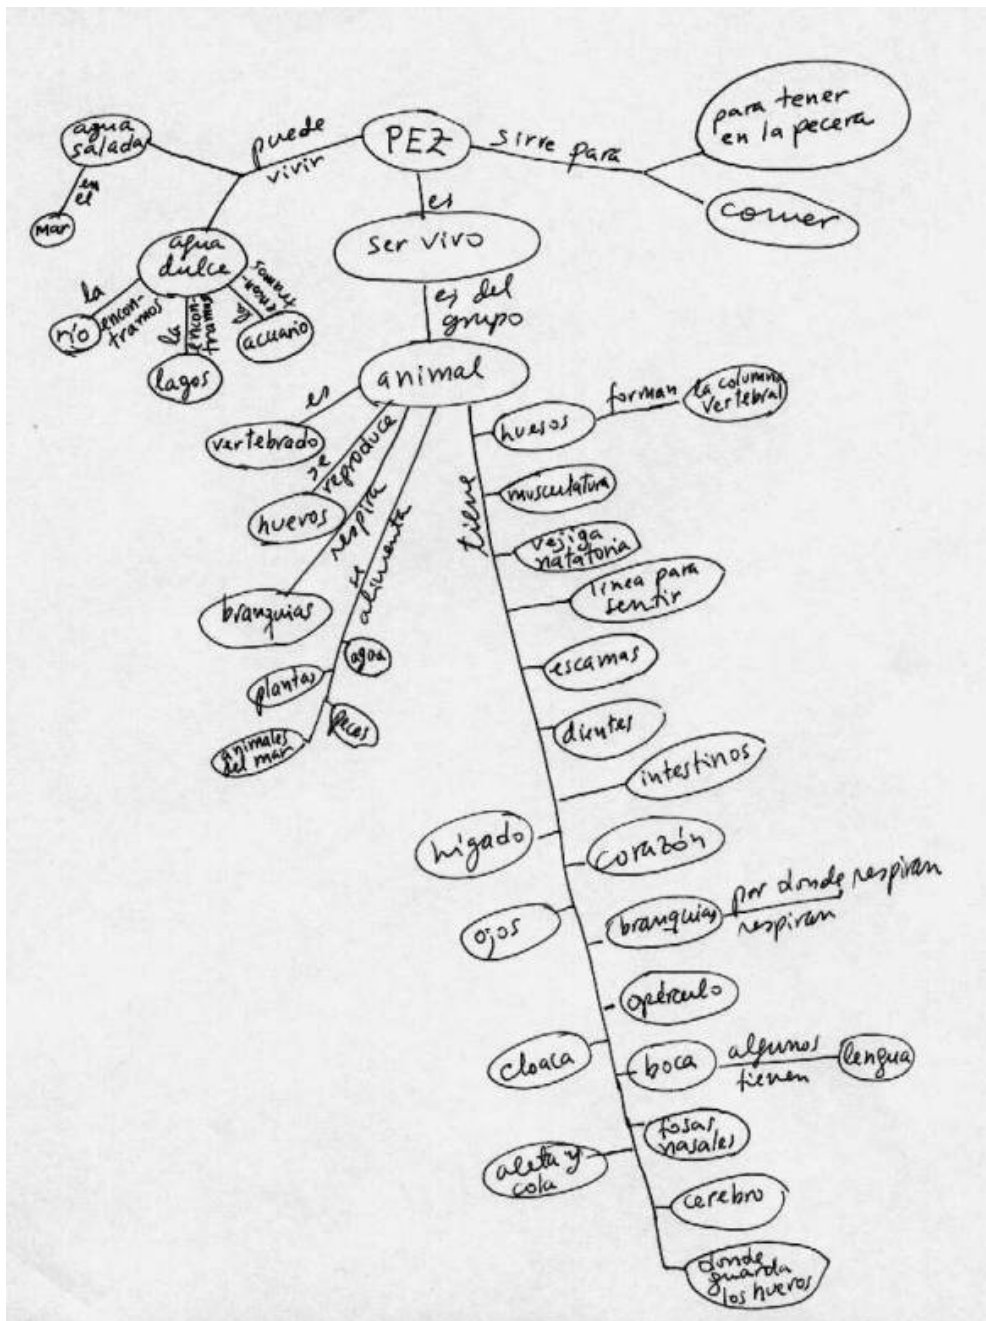 PEZ
puede
vivir
agua
salada
en
el
mar
agua
dulce
la
encon-
tramos
río
la
encon
tramos
lagos
la
encon-
tramos
acuario
sirve para
para tener
en la pecera
comer
es
ser vivo
es del
grupo
animal
es
vertebrado
se
reproduce
huevos
respira
branquias
se
alimenta
agua
plantas
peces
animales
del mar
tiene
huesos
forman
la columna
vertebral
musculatura
vejiga
natatoria
línea para
sentir
escamas
dientes
intestinos
hígado
corazón
ojos
branquias
por donde respiran
respiran
opérculo
cloaca
boca
algunos
tienen
lengua
fosas
nasales
aleta y
cola
cerebro
donde
guarda
los huevos